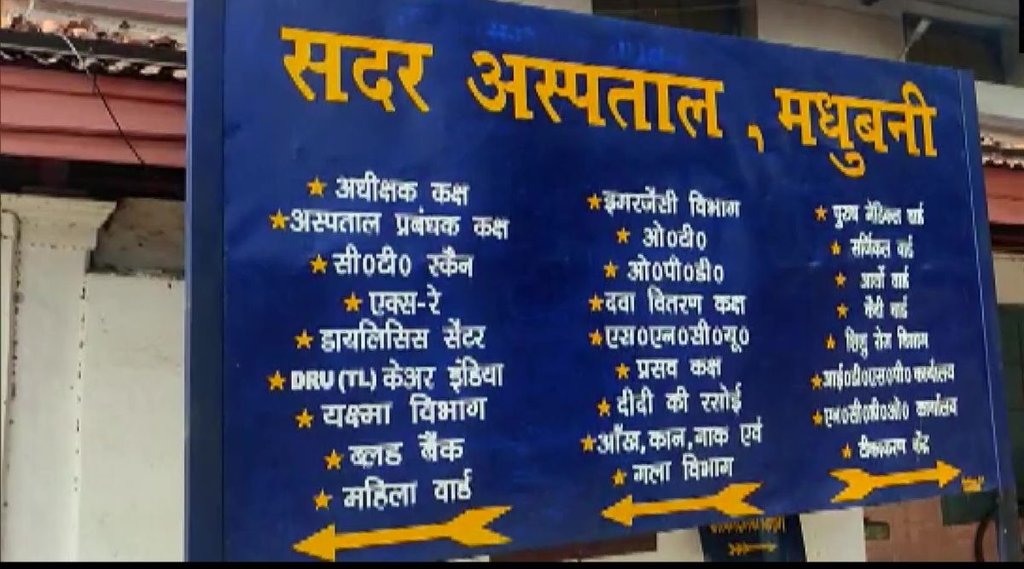 सदर अस्पताल , मधुबनी
★ अधीक्षक कक्ष
★ अस्पताल प्रबंधक कक्ष
★ सी०टी० स्कैन
★ एक्स-रे
★ डायलिसिस सेंटर
★ DRU (TL) केअर इंडिया
★ यक्ष्मा विभाग
★ ब्लड बैंक
★ महिला वार्ड
★ इमरजेंसी विभाग
★ ओ०टी०
★ ओ०पी०डी०
★ दवा वितरण कक्ष
★ एस०एन०सी०यू०
★ प्रसव कक्ष
★ दीदी की रसोई
★ आँख,कान,नाक एवं
★ गला विभाग
★ पुरुष मेडिकल वार्ड
★ सर्जिकल वार्ड
★ वार्ड
★ वार्ड
★ शिशु रोग विभाग
★ आई०डी०एस०पी० कार्यालय
★ कार्यालय
★ टीकाकरण केंद्र